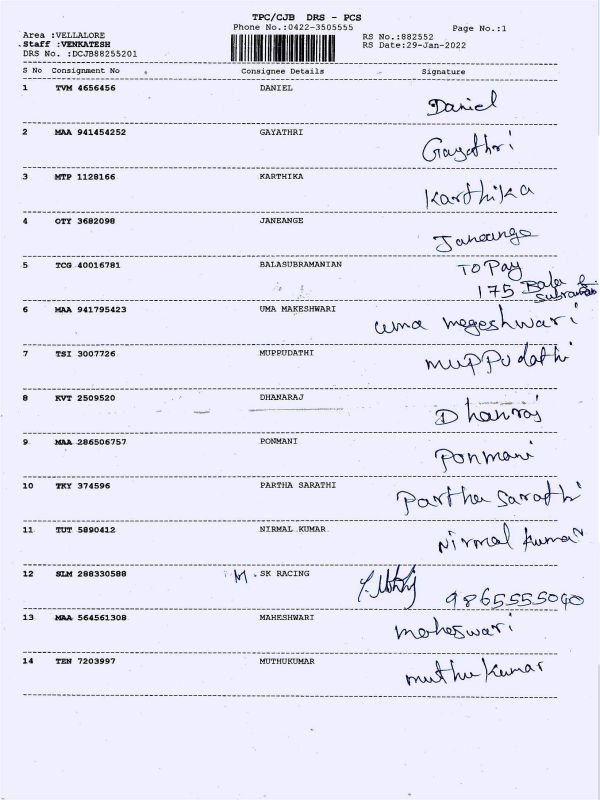 TPC/CJB DRS - PCS
Phone No.:0422-3505555
Page No.:1
Area :VELLALORE
RS No.:882552
Staff :VENKATESH
RS Date:29-Jan-2022
DRS No. :DCJB88255201
S No Consignment No Consignee Details Signature
1 TVM 4656456 DANIEL
Daniel
2 MAA 941454252 GAYATHRI
Gayathri
3 MTP 1128166 KARTHIKA
Karthika
4 OTY 3682098 JANEANGE
Janeange
5 TCG 40016781 BALASUBRAMANIAN
TO Pay
175 Bala
6 MAA 941795423 UMA MAKESHWARI
uma mageshwari
7 TSI 3007726 MUPPUDATHI
muppudathi
8 KVT 2509520 DHANARAJ
Dhanraj
9 MAA 286506757 PONMANI
Ponmani
10 TKY 374596 PARTHA SARATHI
Partha Sarathi
11 TUT 5890412 NIRMAL KUMAR
Nirmal Kumar
12 SLM 288330588 M. SK RACING
9865555040
13 MAA 564561308 MAHESHWARI
maheswari
14 TEN 7203997 MUTHUKUMAR
muthu kumar